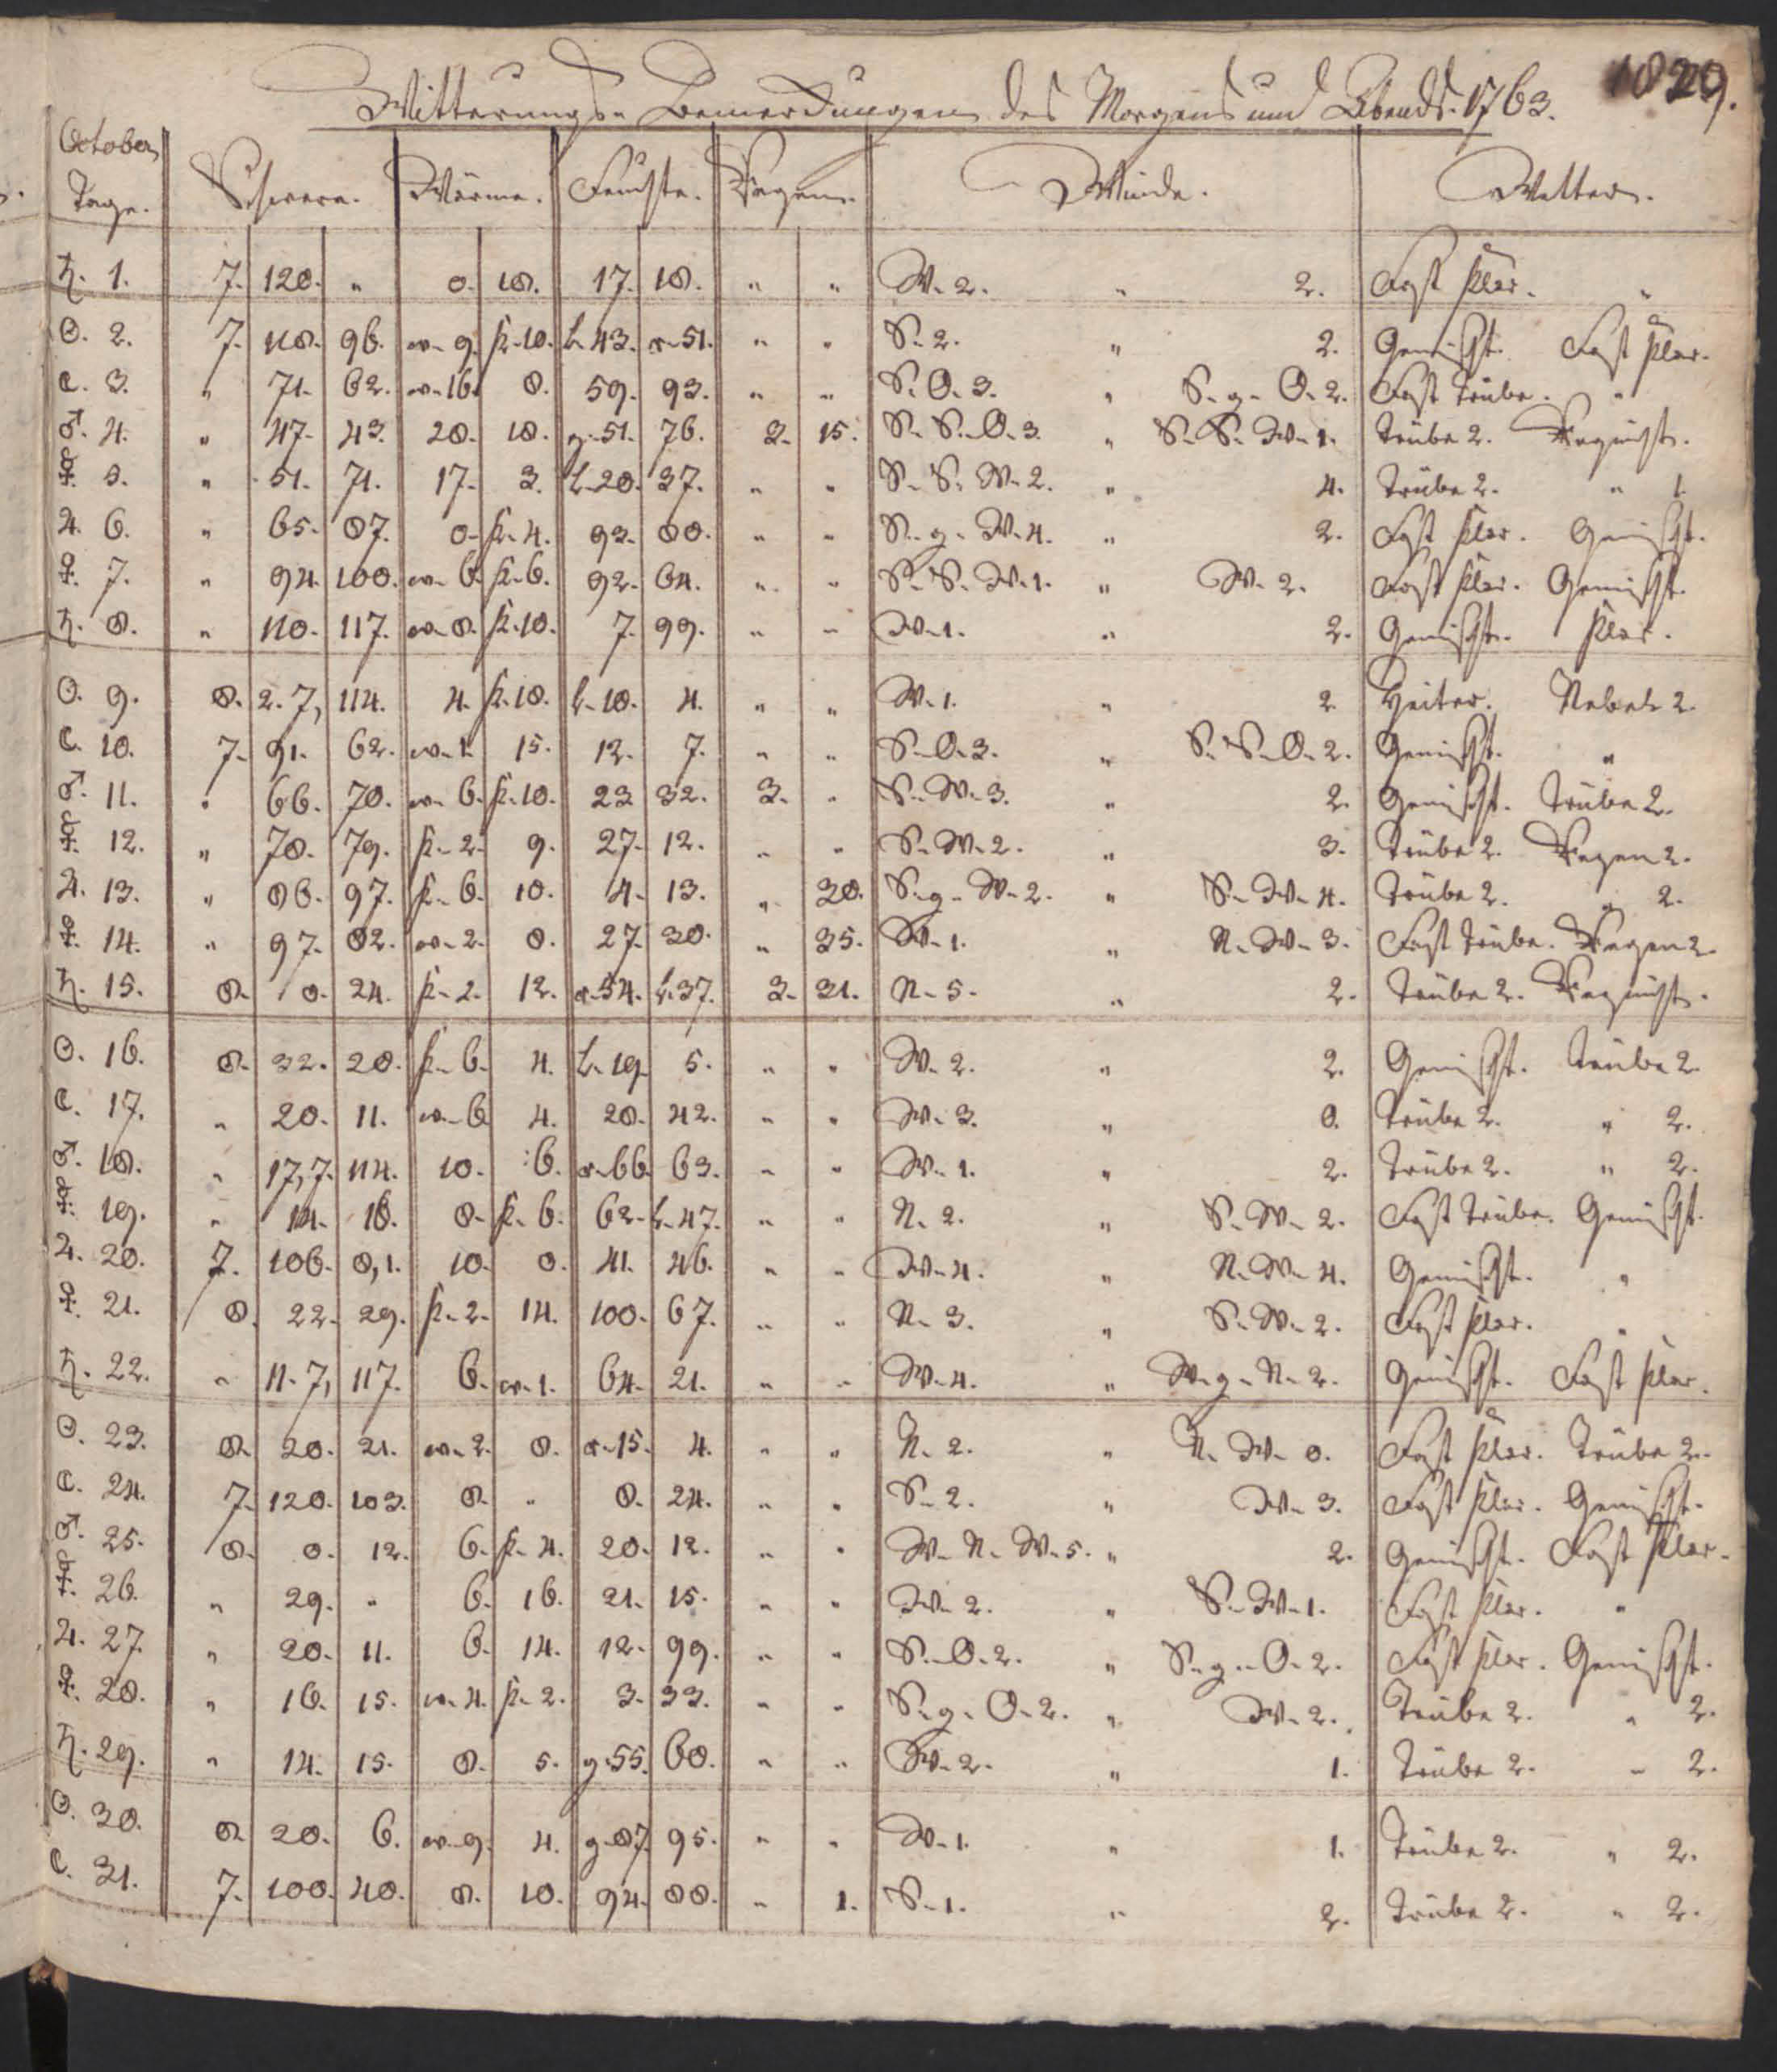 1829.
Witterungs-Bemerckungen des Morgens und Abends. 1763.
October
Tage. Schwere. Wärme. Feuchte. Regen. Winde. Wetter.
♄. 1. 7. 120. " 0. 18. 17. 18. " " W. 2. " 2. Fast klar. "
☉. 2. 7. 118. 96. w. 9. k. 10. l. 43. r. 51. " " S. 2. " 2. Gemischt. Fast klar.
☾. 3. " 71. 62. w. 16. 8. 59. 93. " " S. O. 3. " S. g. O. 2. Fast trübe. "
♂. 4. " 47. 43. 20. 18. g. 51. 76. 3. 15. S. S. O. 3. " S. S. W. 1. Trübe 2. Regnicht.
☿. 5. " 51. 71. 17. 3. l. 20. 37. " " S. S. W. 2. " 4. Trübe 2. " 1.
♃. 6. " 65. 87. 0. k. 4. 93. 80. " " S. g. W. 4. " 2. Fast klar. Gemischt.
♀. 7. " 94. 100. w. 6. k. 6. 92. 64. " " S. S. W. 1. " W. 2. Fast klar. Gemischt.
♄. 8. " 110. 117. w. 8. k. 10. 7. 99. " " W. 1. " 2. Gemischt. klar.
☉. 9. 8. 2. 7, 114. 4. k. 18. l. 18. 4. " " W. 1. " 2. Heiter. Nebel 2.
☾. 10. 7. 91. 62. w. 1. 15. 12. 7. " " S. O. 3. " S. S. O. 2. Gemischt. "
♂. 11. " 66. 70. w. 6. k. 10. 23. 32. 3. " S. W. 3. " 2. Gemischt. Trübe 2.
☿. 12. " 78. 79. k. 2. 9. 27. 12. " " S. W. 2. " 3. Trübe 2. Regen 2.
♃. 13. " 86. 97. k. 6. 10. 4. 13. " 30. S. g. W. 2. " S. W. 4. Trübe 2. " 2.
♀. 14. " 97. 82. w. 2. 8. 27. 30. " 35. W. 1. " N. W. 3. Fast trübe. Regen 2.
♄. 15. 8. 0. 24. k. 2. 12. r. 54. l. 37. 3. 31. N. 5. " 2. Trübe 2. Regnicht.
☉. 16. 8. 32. 28. k. 6. 4. l. 19. 5. " " W. 2. " 2. Gemischt. Trübe 2.
☾. 17. " 20. 11. w. 6. 4. 28. 42. " " W. 3. " 0. Trübe 2. " 2.
♂. 18. " 17, 7. 114. 10. 6. r. 66. 63. " " W. 1. " 2. Trübe 2. " 2.
☿. 19. " 14. 18. 8. k. 6. 62. l. 47. " " N. 2. " S. W. 2. Fast trübe. Gemischt.
♃. 20. 7. 106. 8, 1. 10. 0. 41. 46. " " W. 4. " N. W. 4. Gemischt. "
♀. 21. 8. 22. 29. k. 2. 14. 100. 67. " " N. 3. " S. W. 2. Fast klar. "
♄. 22. " 11. 7, 117. 6. w. 1. 64. 21. " " W. 4. " W. g. N. 2. Gemischt. Fast klar.
☉. 23. 8. 20. 21. w. 2. 8. r. 15. 4. " " N. 2. " N. W. 0. Fast klar. Trübe 2.
☾. 24. 7. 120. 103. 8. " 8. 24. " " S. 2. " W. 3. Fast klar. Gemischt.
♂. 25. 8. 0. 12. 6. k. 4. 20. 12. " " W. N. W. 5. " 2. Gemischt. Fast klar.
☿. 26. " 29. " 6. 16. 21. 15. " " W. 2. " S. W. 1. Fast klar. "
♃. 27. " 20. 11. 6. 14. 12. 99. " " S. O. 2. " S. g. O. 2. Fast klar. Gemischt.
♀. 28. " 16. 15. w. 4. k. 2. 3. 33. " " S. g. O. 2. " W. 2. Trübe 2. " 2.
♄. 29. " 14. 15. 8. 5. g. 55. 60. " " W. 2. " 1. Trübe 2. " 2.
☉. 30. 8. 20. 6. w. 9. 4. g. 87. 95. " " W. 1. " 1. Trübe 2. " 2.
☾. 31. 7. 100. 40. 8. 10. 94. 88. " 1. S. 1. " 2. Trübe 2. " 2.